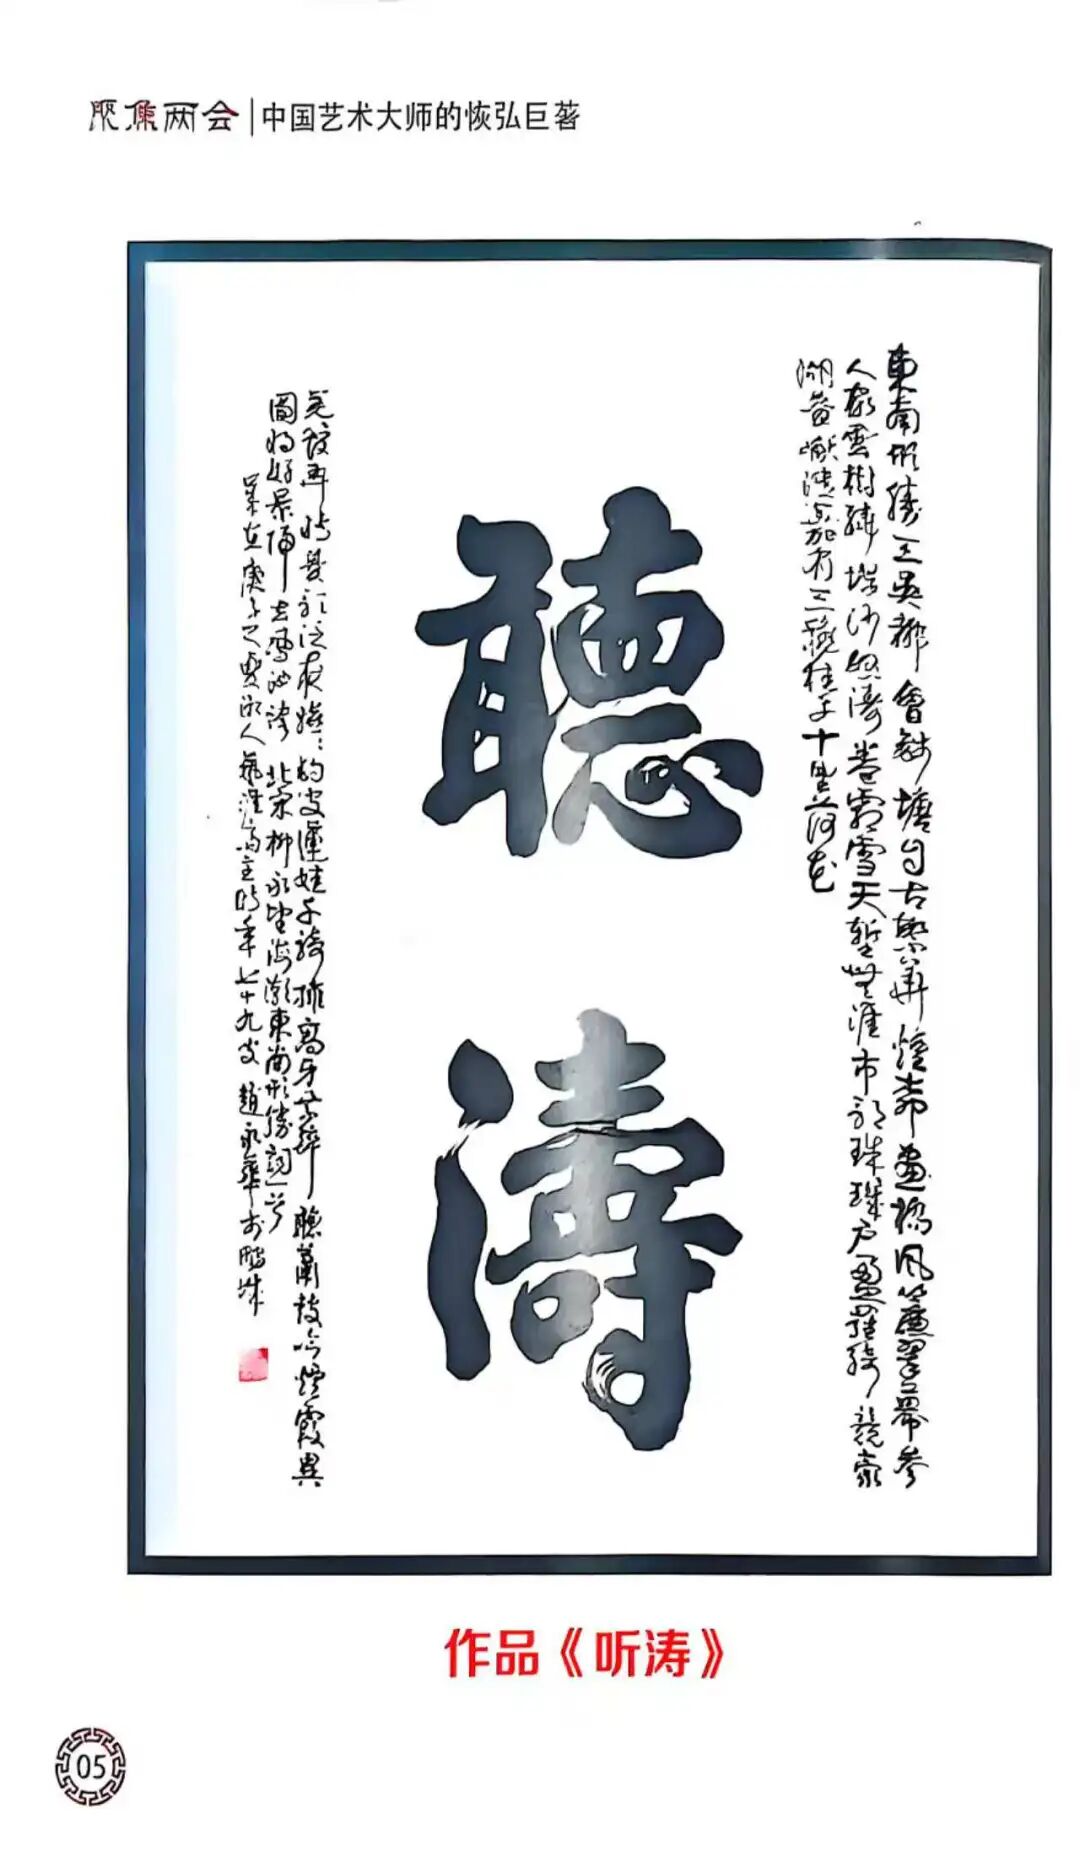 聚焦两会|中国艺术大师的恢弘巨著
東南形勝三吳都會錢塘自古繁華煙柳畫橋風簾翠幕參
人家雲樹繞堤沙怒濤卷霜雪天塹無涯市列珠璣戶盈羅綺競豪
湖巘清嘉有三秋桂子十里荷花
聽濤
羌管弄晴菱歌泛夜嬉嬉釣叟蓮娃千騎擁高牙乘醉聽蕭鼓吟煙霞異
圖將好景歸去鳳池誇 北宋柳永望海潮東南形勝詞一首
歲在庚子之夏人主時年七十九叟趙永華書鵬城
作品《听涛》
05